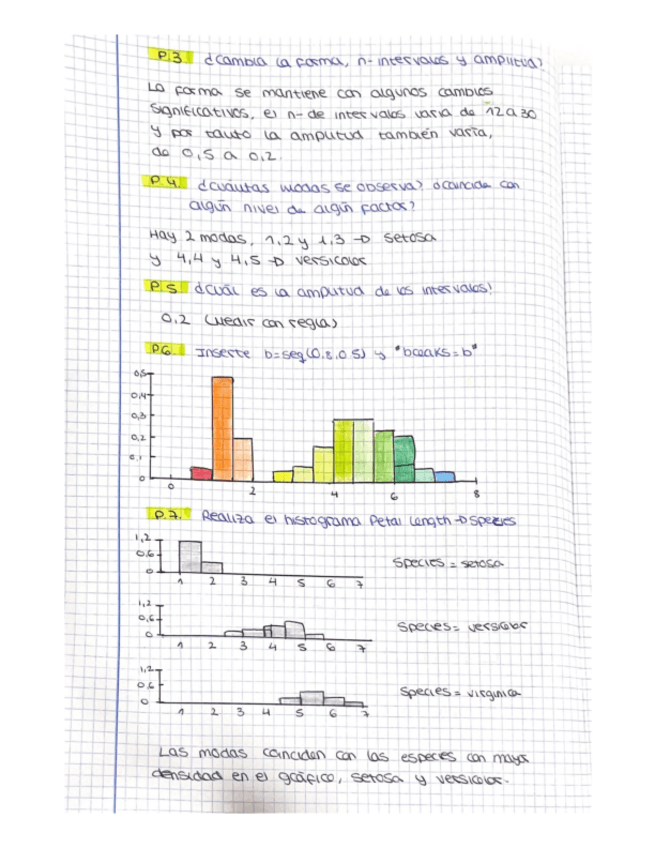 P.3 ¿Cambia la forma, n- intervalos y amplitud?
La forma se mantiene con algunos cambios
significativos, el n- de intervalos varia de 12 a 30
y por tanto la amplitud también varía,
de 0,5 a 0,2.
P.4. ¿Cuántas modas se observa? ¿coincide con
algún nivel de algún factor?
Hay 2 modas, 1,2 y 1,3 → setosa
y 4,4 y 4,5 → versicolor
P.5. ¿Cuál es la amplitud de los intervalos?
0,2 (medir con regla)
P.6. Inserte b=seq(0,8,0.5) y "breaks=b"
0,5
0,4
0,3
0,2
0,1
0
0 2 4 6 8
P.7. Realiza el histograma Petal Length → Species
1,2
0,6
0
1 2 3 4 5 6 7
Species = setosa
1,2
0,6
0
1 2 3 4 5 6 7
Species = versicolor
1,2
0,6
0
1 2 3 4 5 6 7
Species = virginica
Las modas coinciden con las especies con mayor
densidad en el gráfico, setosa y versicolor.